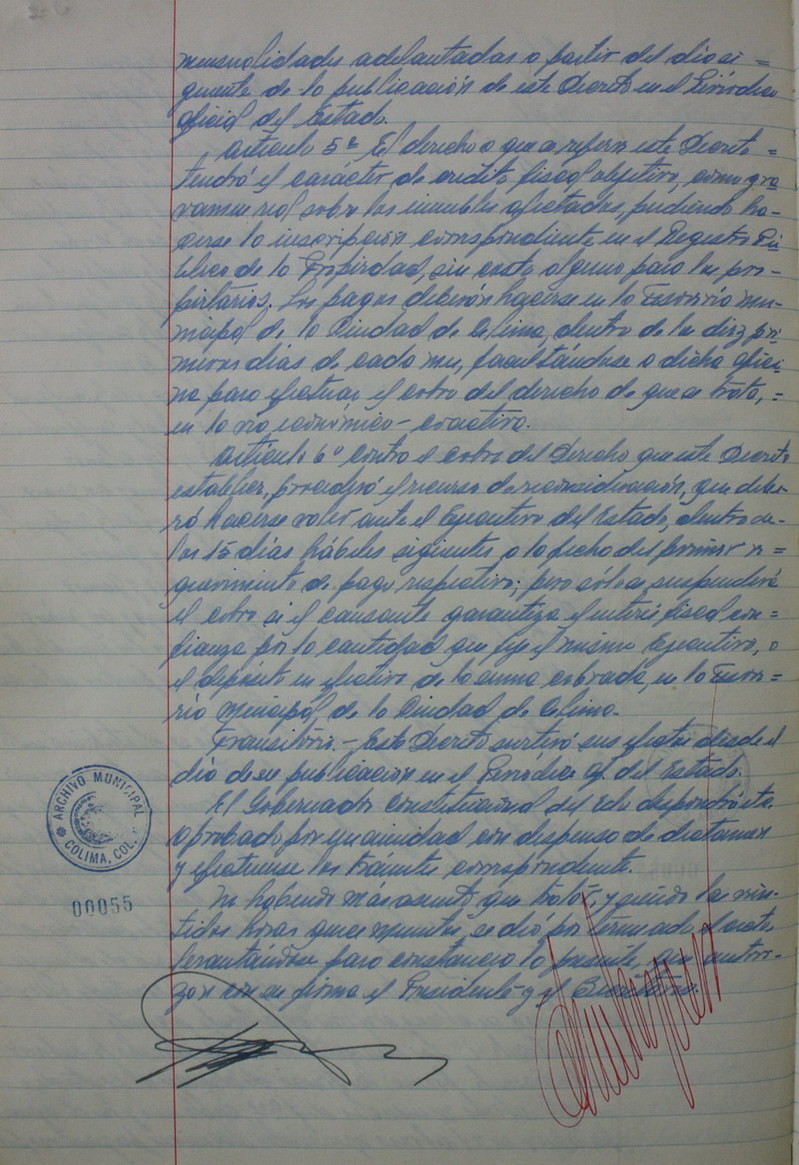 mensualidades adelantadas a partir del dia si=
guiente de la publicación de este Decreto en el Periódico
oficial del Estado.
Artículo 5º El derecho a que se refiere este Decreto=
tendrá el carácter de crédito fiscal objetivo, como gra
vamen real sobre los inmuebles afectados, pudiendo ha-
cerse la inscripción correspondiente en el Registro Pú
blico de la Propiedad, sin costo alguno para los pro-
pietarios. Los pagos deberán hacerse en la Tesorería mu-
nicipal de la Ciudad de Colima, dentro de los diez pri
meros días de cada mes, facultándose a dicha ofici
na para efectuar el cobro del derecho de que se trata,=
en la vía económico-coactiva.
Artículo 6º Contra el cobro del Derecho que este Decreto
establece, procederá el recurso de reconsideración, que debe-
rá hacerse valer ante el Ejecutivo del Estado, dentro de
los 15 días hábiles sigientes a la fecha del primer re
querimiento de pago respectivo; pero sólo se suspenderá
el cobro si el causante garantiza el interés fiscal con=
fianza por la cantidad que fije el mismo Ejecutivo, o
el depósito en efectivo de la suma cobrada, en la Tesore=
ría Municipal, de la Ciudad de Colima.
Transitorio.- Este Decreto surtirá sus efectos desde el
día de su publicación en el Periódico Of. del Estado.
El Gobernador Constitucional del Edo dispondrá etc
aprobado por unanimidad con dispensa de dictamen
y efectuense los trámites correspondiente.
No habiendo más asunto que tratar, y siendo las vein-
tidos horas quince minutos, se dió por terminado el acto
levantándose para constancia la presente que autori-
zan con su firma el Presidente y el Secretario.
ARCHIVO MUNICIPAL
COLIMA, COL.
00055